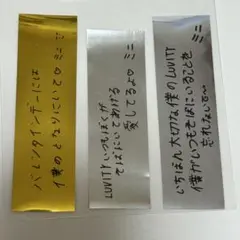 バレンタインデーには
僕のとなりにいてね ミニ
LUVITYいつもぼくが
そばにいてあげる
愛してるよ♡ ミニ
いちばん大切な僕のLUVITY
僕がいつもそばにいることを
忘れないでね〜
ミニ